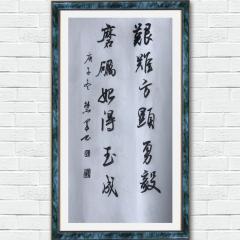 艱難方顯勇毅
磨礪始得玉成
庚子冬